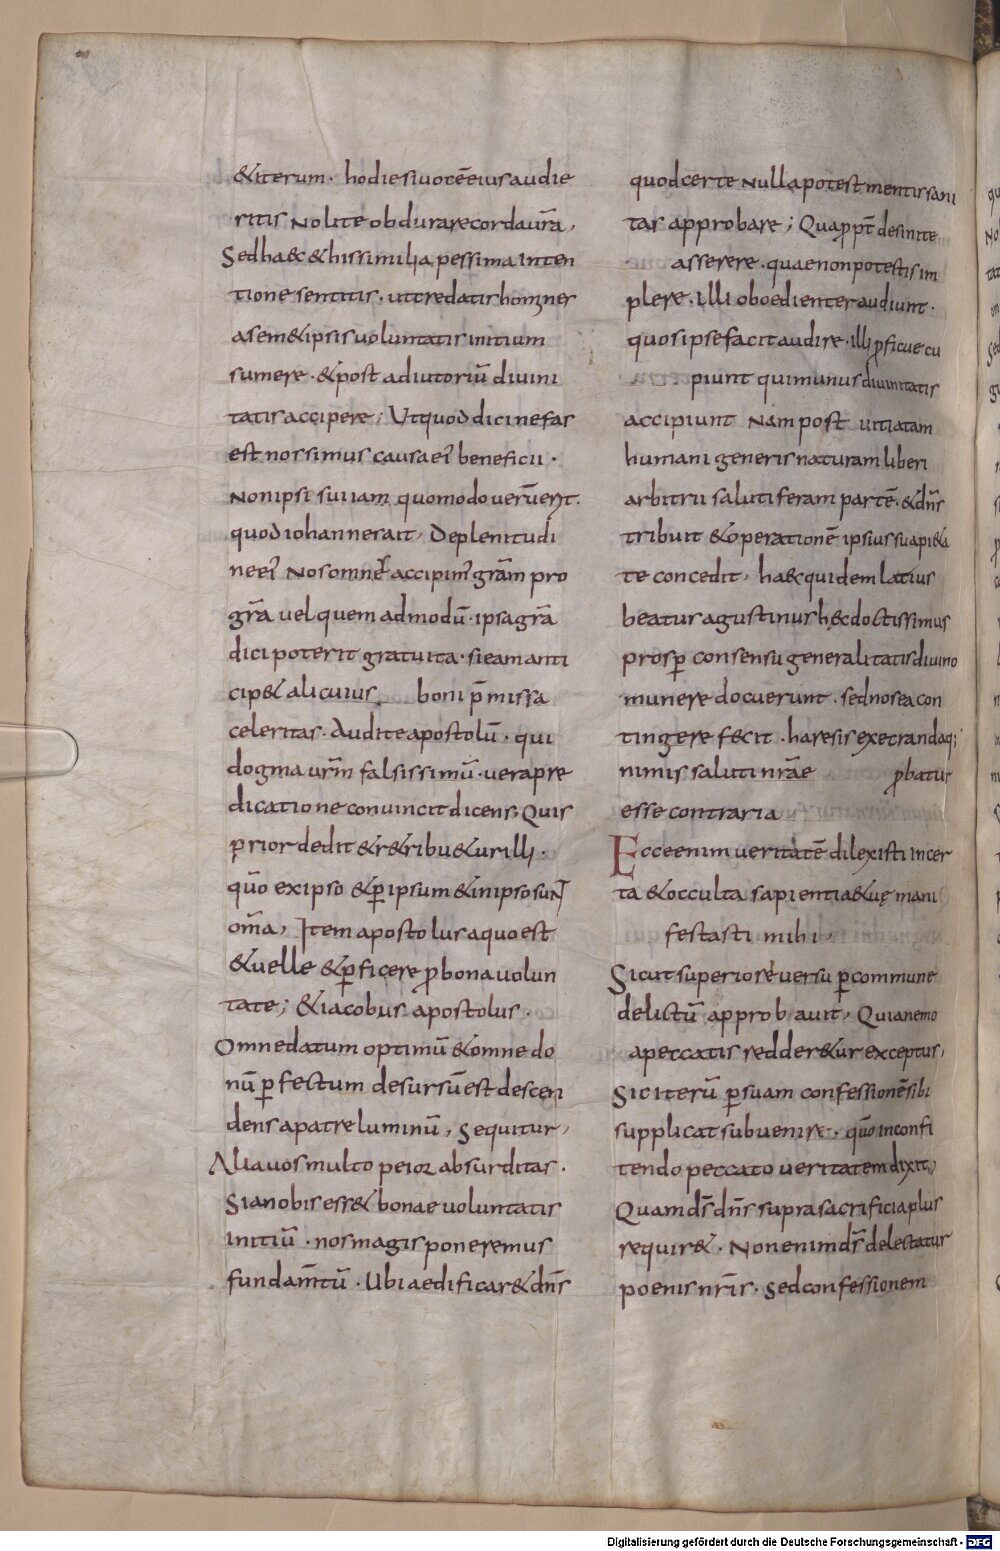 &iterum · hodie si uocē eius audie
ritis Nolite obdurare corda ur̄a,
Sed haec & his similia pessima inten
tione sentitis · ut credatis homines
a sem&ipsis uoluntatis initium
sumere · & post adiutoriū diuini
tatis accipere; Ut quod dici nefas
est nos simus causa ei' beneficii ·
Non ipsi sui iam quomodo uerū erit.
quod iohannes ait, De plenitudi
ne ei' Nos omnes accipim' gr̄am pro
gr̄a uel quem admodū · ipsa gr̄a
dici poterit gratuita · si eam anti
cip& alicuius boni p̄missa
celeritas · Audite apostolū · qui
dogma ur̄m falsissimū · uera prę
dicatione conuincit dicens Quis
prior dedit & r&ribu&ur illi ·
qm̄o ex ipso & ꝑ ipsum & in ipso suNT
om̄a, Item apostolus a quo est
& uelle & ꝑficere ꝓ bona uolun
tate; & iacobus apostolus ·
Omne datum optimū & omne do
nū ꝑfectum desursū est descen
dens a patre luminū, Sequitur,
Alia uos multo peior absurditas ·
Si a nobis ess& bonae uoluntatis
initiū · nos magis poneremus
fundam̄tū · Ubi aedificar& dn̄s
quod certe Nulla potest mentis sani
tas approbare; Quapp̄t desinite
asserere · quae non potestis im
plere · illi oboedienter audiunt ·
quos ipse facit audire · illi ꝓficue cu
piunt qui munus diuinitatis
accipiunt Nam post uitiatam
humani generis naturam liberi
arbitrii salutiferam partē · & dn̄s
tribuit & operationē ipsius sua pi&a
te concedit, haec quidem latius
beatus agustinus h& doctissimus
prosꝑ consensu generalitatis diuino
munere docuerunt · sed nos ea con
tingere fecit · haresis execrandaq;
nimis saluti nr̄ae ꝓbatur
esse contraria
Ecce enim ueritatē dilexisti incer
ta & occulta sapientiae tuę mani
festasti mihi,
Sicut superiore uersu ꝑ commune
delictū approbauit, Quia nemo
a peccatis redder&ur exceptus,
Sic iterū ꝑ suam confessionē sibi
supplicat subuenire · qm̄o in confi
tendo peccato ueritatem dixit,
Quam ds̄ dn̄s supra sacrificia plus
requir& · Non enim ds̄ delectatur
poenis nr̄is · Sed confessionem
Digitalisierung gefördert durch die Deutsche Forschungsgemeinschaft - DFG